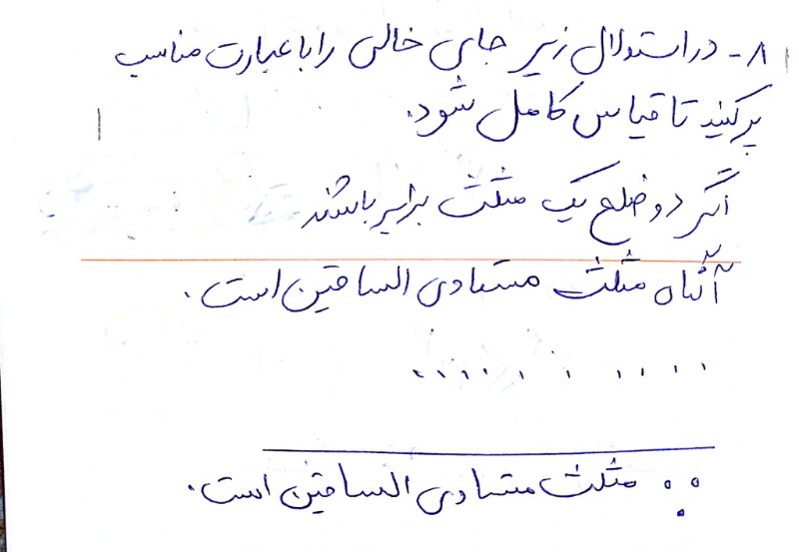 ۸- در استدلال زیر جای خالی را با عبارت مناسب
پر کنید تا قیاس کامل شود.
اگر دو ضلع یک مثلث برابر باشند
آنگاه مثلث متساوی الساقین است.
............
∴ مثلث متساوی الساقین است.